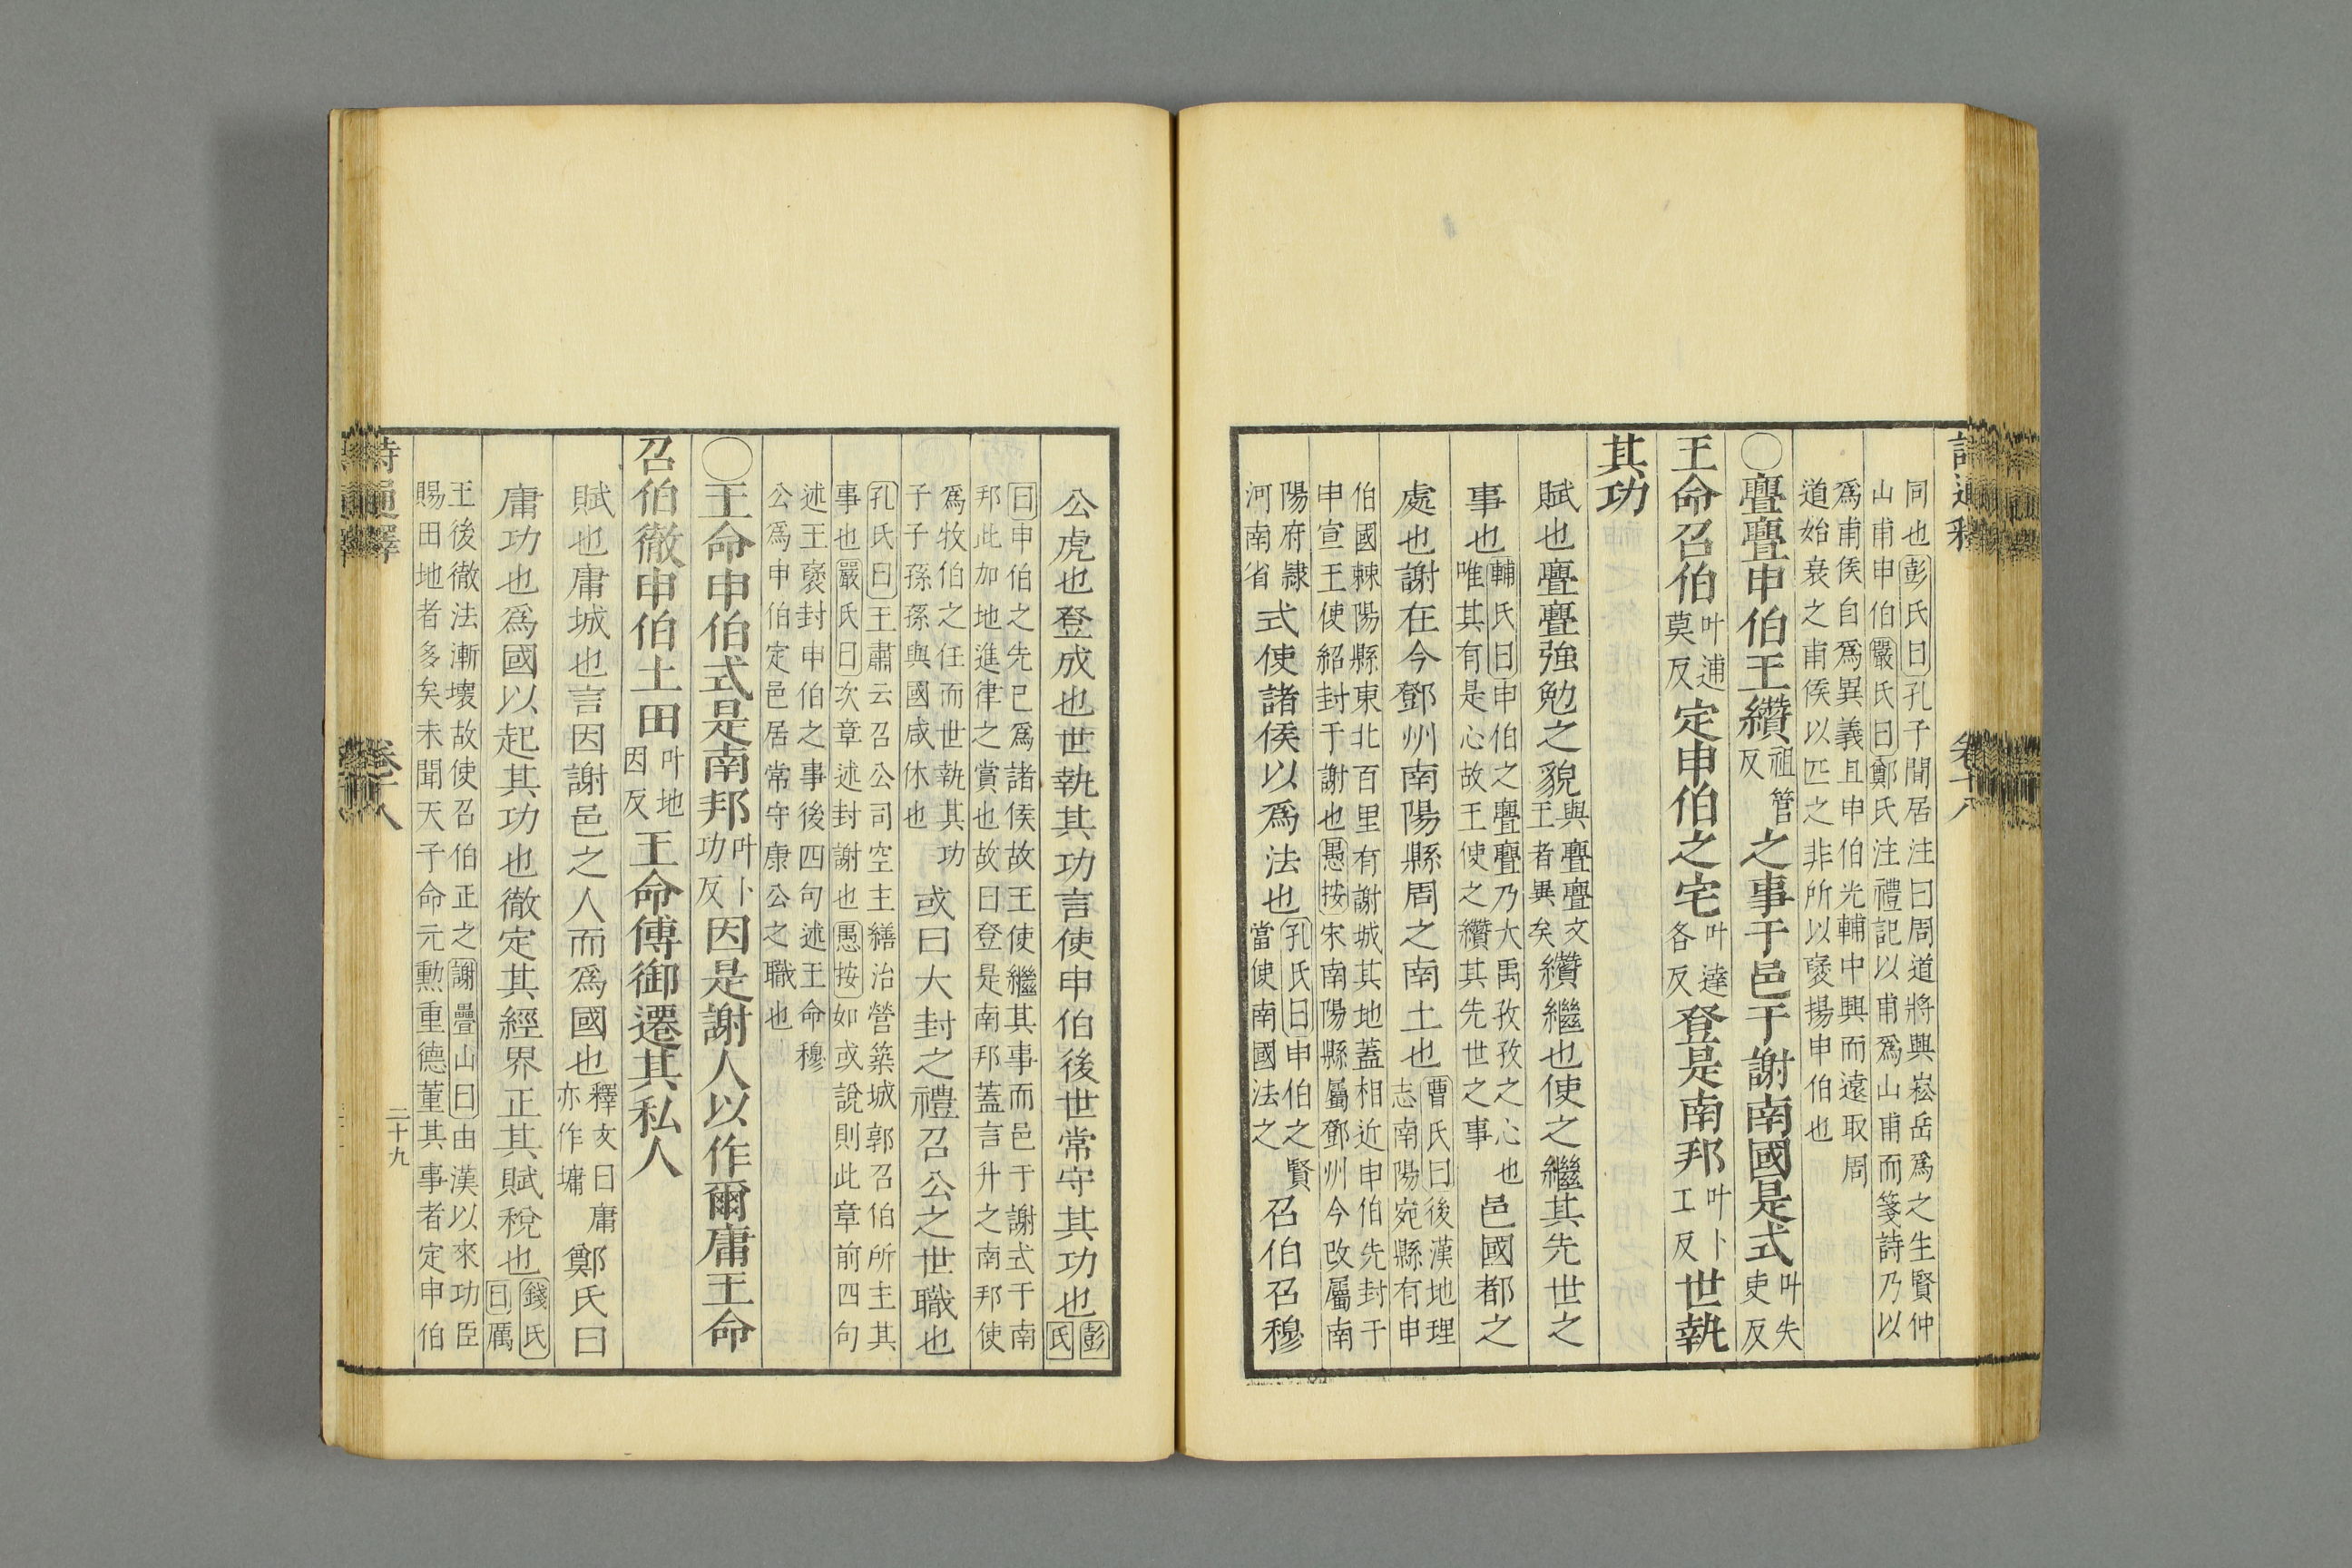 同也彭氏曰孔子閒居注曰周道將興崧岳爲之生賢仲
山甫申伯嚴氏曰鄭氏注禮記以甫爲山甫而箋詩乃以
爲甫侯自爲異義且申伯光輔中興而遠取周
道始衰之甫侯以匹之非所以褒揚申伯也
○亹亹申伯王纘祖管反之事于邑于謝南國是式叶失吏反
王命召伯叶逋莫反定申伯之宅叶達各反登是南邦叶卜工反世執
其功
賦也亹亹強勉之貌與亹亹文王者異矣纘繼也使之繼其先世之
事也輔氏曰申伯之亹亹乃大禹孜孜之心也唯其有是心故王使之纘其先世之事邑國都之
處也謝在今鄧州南陽縣周之南土也曹氏曰後漢地理志南陽宛縣有申
伯國棘陽縣東北百里有謝城其地蓋相近申伯先封于
申宣王使紹封于謝也愚按宋南陽縣屬鄧州今改屬南
陽府隷河南省式使諸侯以爲法也孔氏曰申伯之賢當使南國法之召伯召穆
詩通釋
卷十八
公虎也登成也世執其功言使申伯後世常守其功也彭氏
曰申伯之先已爲諸侯故王使繼其事而邑于謝式于南
邦此加地進律之賞也故曰登是南邦蓋言升之南邦使
爲牧伯之任而世執其功子子孫孫與國咸休也或曰大封之禮召公之世職也
孔氏曰王肅云召公司空主繕治營築城郭召伯所主其
事也嚴氏曰次章述封謝也愚按如或說則此章前四句
述王褒封申伯之事後四句述王命穆
公爲申伯定邑居常守康公之職也
○王命申伯式是南邦叶卜功反因是謝人以作爾庸王命
召伯徹申伯土田叶地因反王命傅御遷其私人
賦也庸城也言因謝邑之人而爲國也釋文曰庸亦作墉鄭氏曰
庸功也爲國以起其功也徹定其經界正其賦稅也錢氏曰厲
王後徹法漸壞故使召伯正之謝疊山曰由漢以來功臣
賜田地者多矣未聞天子命元勳重德董其事者定申伯
詩通釋
卷十八
二十九